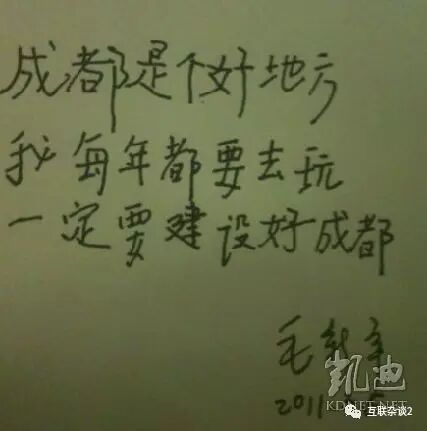 成都是个好地方
我每年都要去玩
一定要建设好成都
毛新宇
2011
凯迪
KDNET.NET
互联杂谈2